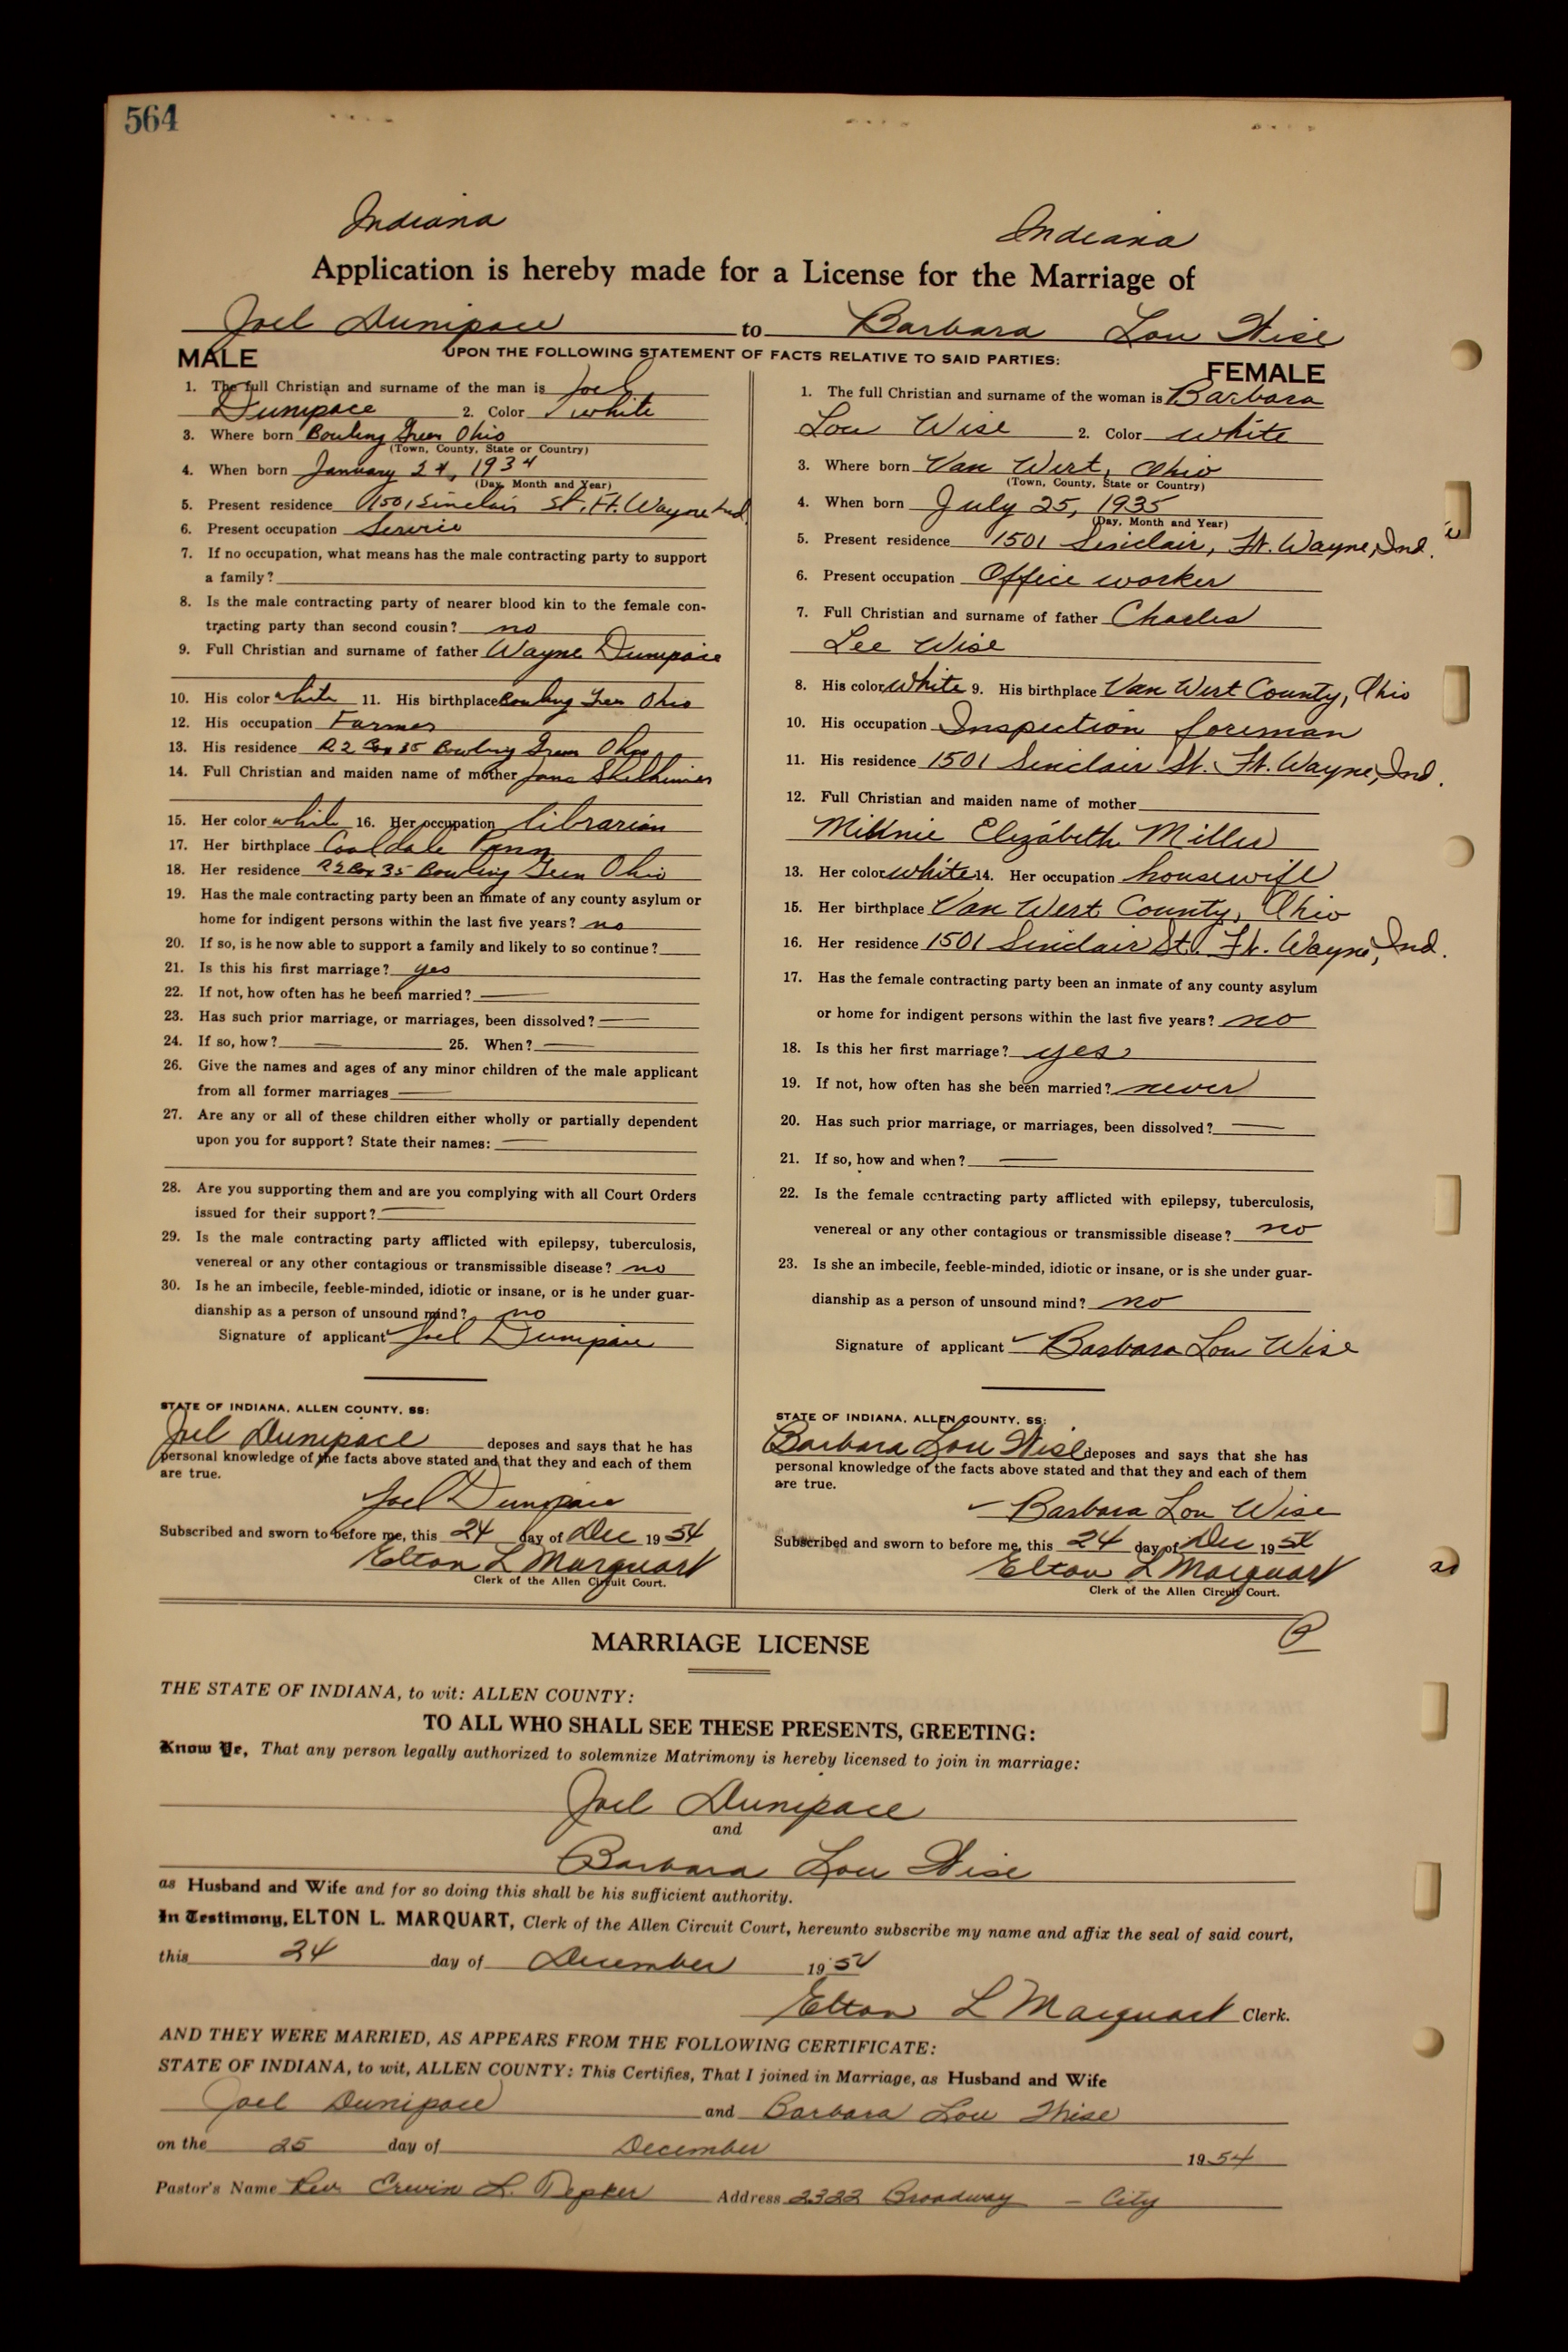 564
Indiana
Indiana
Application is hereby made for a License for the Marriage of
Joel Dunipace to Barbara Lou Wise
UPON THE FOLLOWING STATEMENT OF FACTS RELATIVE TO SAID PARTIES:
MALE
1. The full Christian and surname of the man is Joel
Dunipace 2. Color white
3. Where born Bowling Green Ohio
(Town, County, State or Country)
4. When born January 24, 1934
(Day, Month and Year)
5. Present residence 1501 Sinclair St. Ft. Wayne Ind
6. Present occupation Service
7. If no occupation, what means has the male contracting party to support
a family?
8. Is the male contracting party of nearer blood kin to the female con-
tracting party than second cousin? no
9. Full Christian and surname of father Wayne Dunipace
10. His color white 11. His birthplace Bowling Green Ohio
12. His occupation Farmer
13. His residence R 2 Box 35 Bowling Green Ohio
14. Full Christian and maiden name of mother Jane
15. Her color white 16. Her occupation librarian
17. Her birthplace Coaldale Penn
18. Her residence R 2 Box 35 Bowling Green Ohio
19. Has the male contracting party been an inmate of any county asylum or
home for indigent persons within the last five years? no
20. If so, is he now able to support a family and likely to so continue?
21. Is this his first marriage? yes
22. If not, how often has he been married? —
23. Has such prior marriage, or marriages, been dissolved? —
24. If so, how? — 25. When? —
26. Give the names and ages of any minor children of the male applicant
from all former marriages —
27. Are any or all of these children either wholly or partially dependent
upon you for support? State their names: —
28. Are you supporting them and are you complying with all Court Orders
issued for their support? —
29. Is the male contracting party afflicted with epilepsy, tuberculosis,
venereal or any other contagious or transmissible disease? no
30. Is he an imbecile, feeble-minded, idiotic or insane, or is he under guar-
dianship as a person of unsound mind? no
Signature of applicant Joel Dunipace
STATE OF INDIANA, ALLEN COUNTY, SS:
Joel Dunipace deposes and says that he has
personal knowledge of the facts above stated and that they and each of them
are true.
Joel Dunipace
Subscribed and sworn to before me, this 24 day of Dec 1954
Elton L Marquart
Clerk of the Allen Circuit Court.
FEMALE
1. The full Christian and surname of the woman is Barbara
Lou Wise 2. Color white
3. Where born Van Wert, Ohio
(Town, County, State or Country)
4. When born July 25, 1935
(Day, Month and Year)
5. Present residence 1501 Sinclair, Ft. Wayne, Ind.
6. Present occupation Office worker
7. Full Christian and surname of father Charles
Lee Wise
8. His color white 9. His birthplace Van Wert County, Ohio
10. His occupation Inspection foreman
11. His residence 1501 Sinclair St. Ft. Wayne, Ind.
12. Full Christian and maiden name of mother
Minnie Elizabeth Miller
13. Her color white 14. Her occupation housewife
15. Her birthplace Van Wert County, Ohio
16. Her residence 1501 Sinclair St. Ft. Wayne, Ind.
17. Has the female contracting party been an inmate of any county asylum
or home for indigent persons within the last five years? no
18. Is this her first marriage? yes
19. If not, how often has she been married? never
20. Has such prior marriage, or marriages, been dissolved? —
21. If so, how and when? —
22. Is the female contracting party afflicted with epilepsy, tuberculosis,
venereal or any other contagious or transmissible disease? no
23. Is she an imbecile, feeble-minded, idiotic or insane, or is she under guar-
dianship as a person of unsound mind? no
Signature of applicant Barbara Lou Wise
STATE OF INDIANA, ALLEN COUNTY, SS:
Barbara Lou Wise deposes and says that she has
personal knowledge of the facts above stated and that they and each of them
are true.
Barbara Lou Wise
Subscribed and sworn to before me, this 24 day of Dec 1954
Elton L Marquart
Clerk of the Allen Circuit Court.
MARRIAGE LICENSE
THE STATE OF INDIANA, to wit: ALLEN COUNTY:
TO ALL WHO SHALL SEE THESE PRESENTS, GREETING:
Know Ye, That any person legally authorized to solemnize Matrimony is hereby licensed to join in marriage:
Joel Dunipace
and
Barbara Lou Wise
as Husband and Wife and for so doing this shall be his sufficient authority.
In Testimony, ELTON L. MARQUART, Clerk of the Allen Circuit Court, hereunto subscribe my name and affix the seal of said court,
this 24 day of December 1954
Elton L Marquart Clerk.
AND THEY WERE MARRIED, AS APPEARS FROM THE FOLLOWING CERTIFICATE:
STATE OF INDIANA, to wit, ALLEN COUNTY: This Certifies, That I joined in Marriage, as Husband and Wife
Joel Dunipace and Barbara Lou Wise
on the 25 day of December 1954
Pastor's Name Rev. Erwin L. Tepker Address 2322 Broadway – City